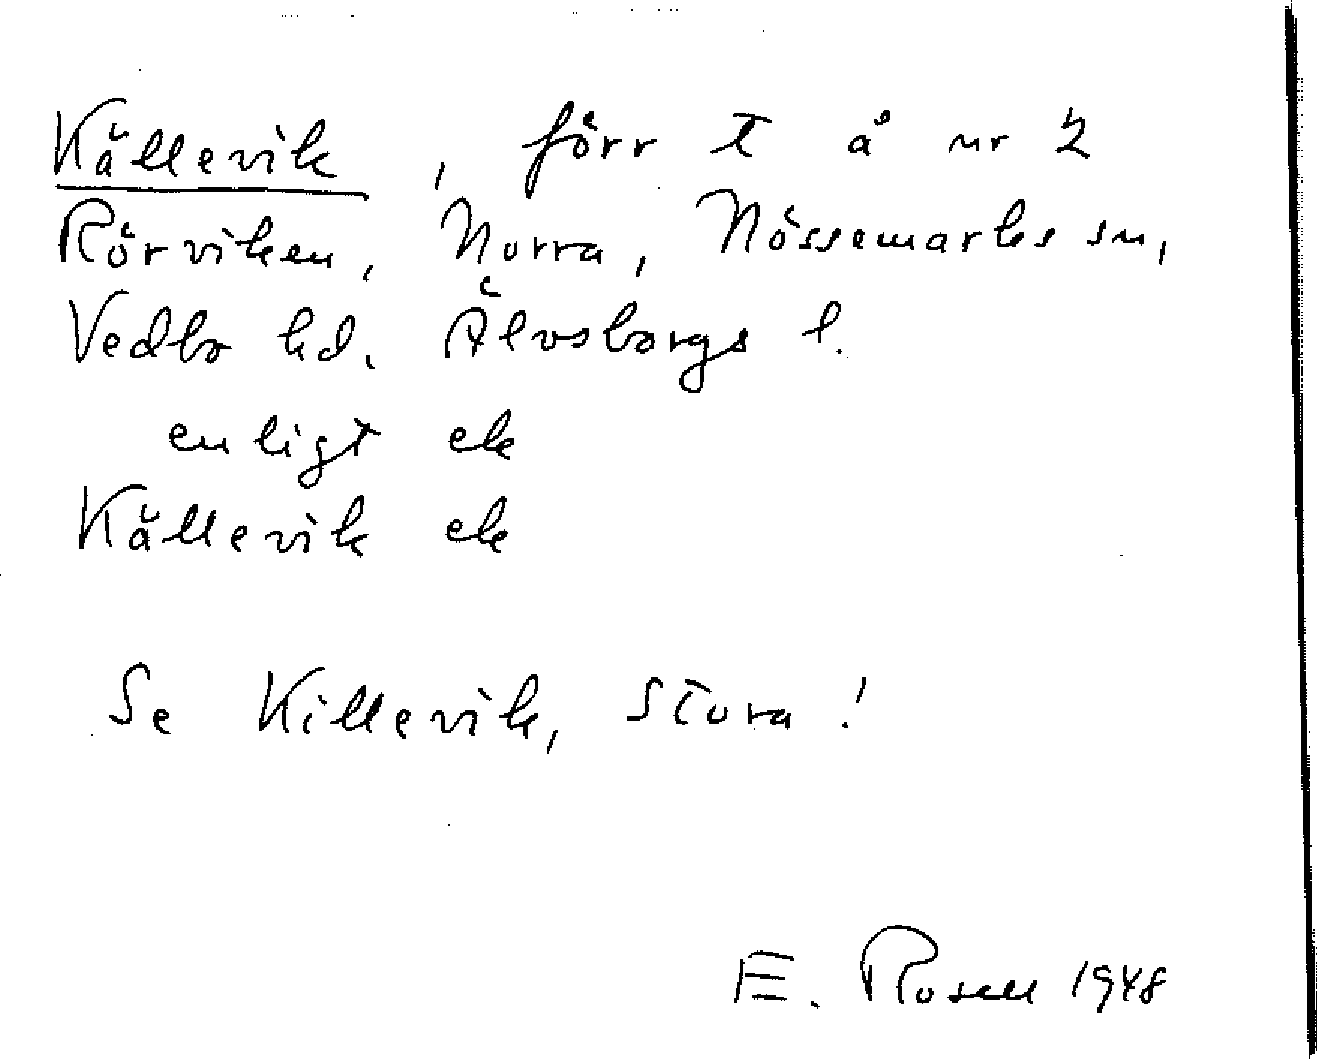 Källevik, förr t å nr 2
Rörviken, Norra, Nössemarks sn,
Vedbo hd. Älvsborgs l.
enligt ek
Källevik ek
Se Killevik, Stora!
E. Rosell 1948